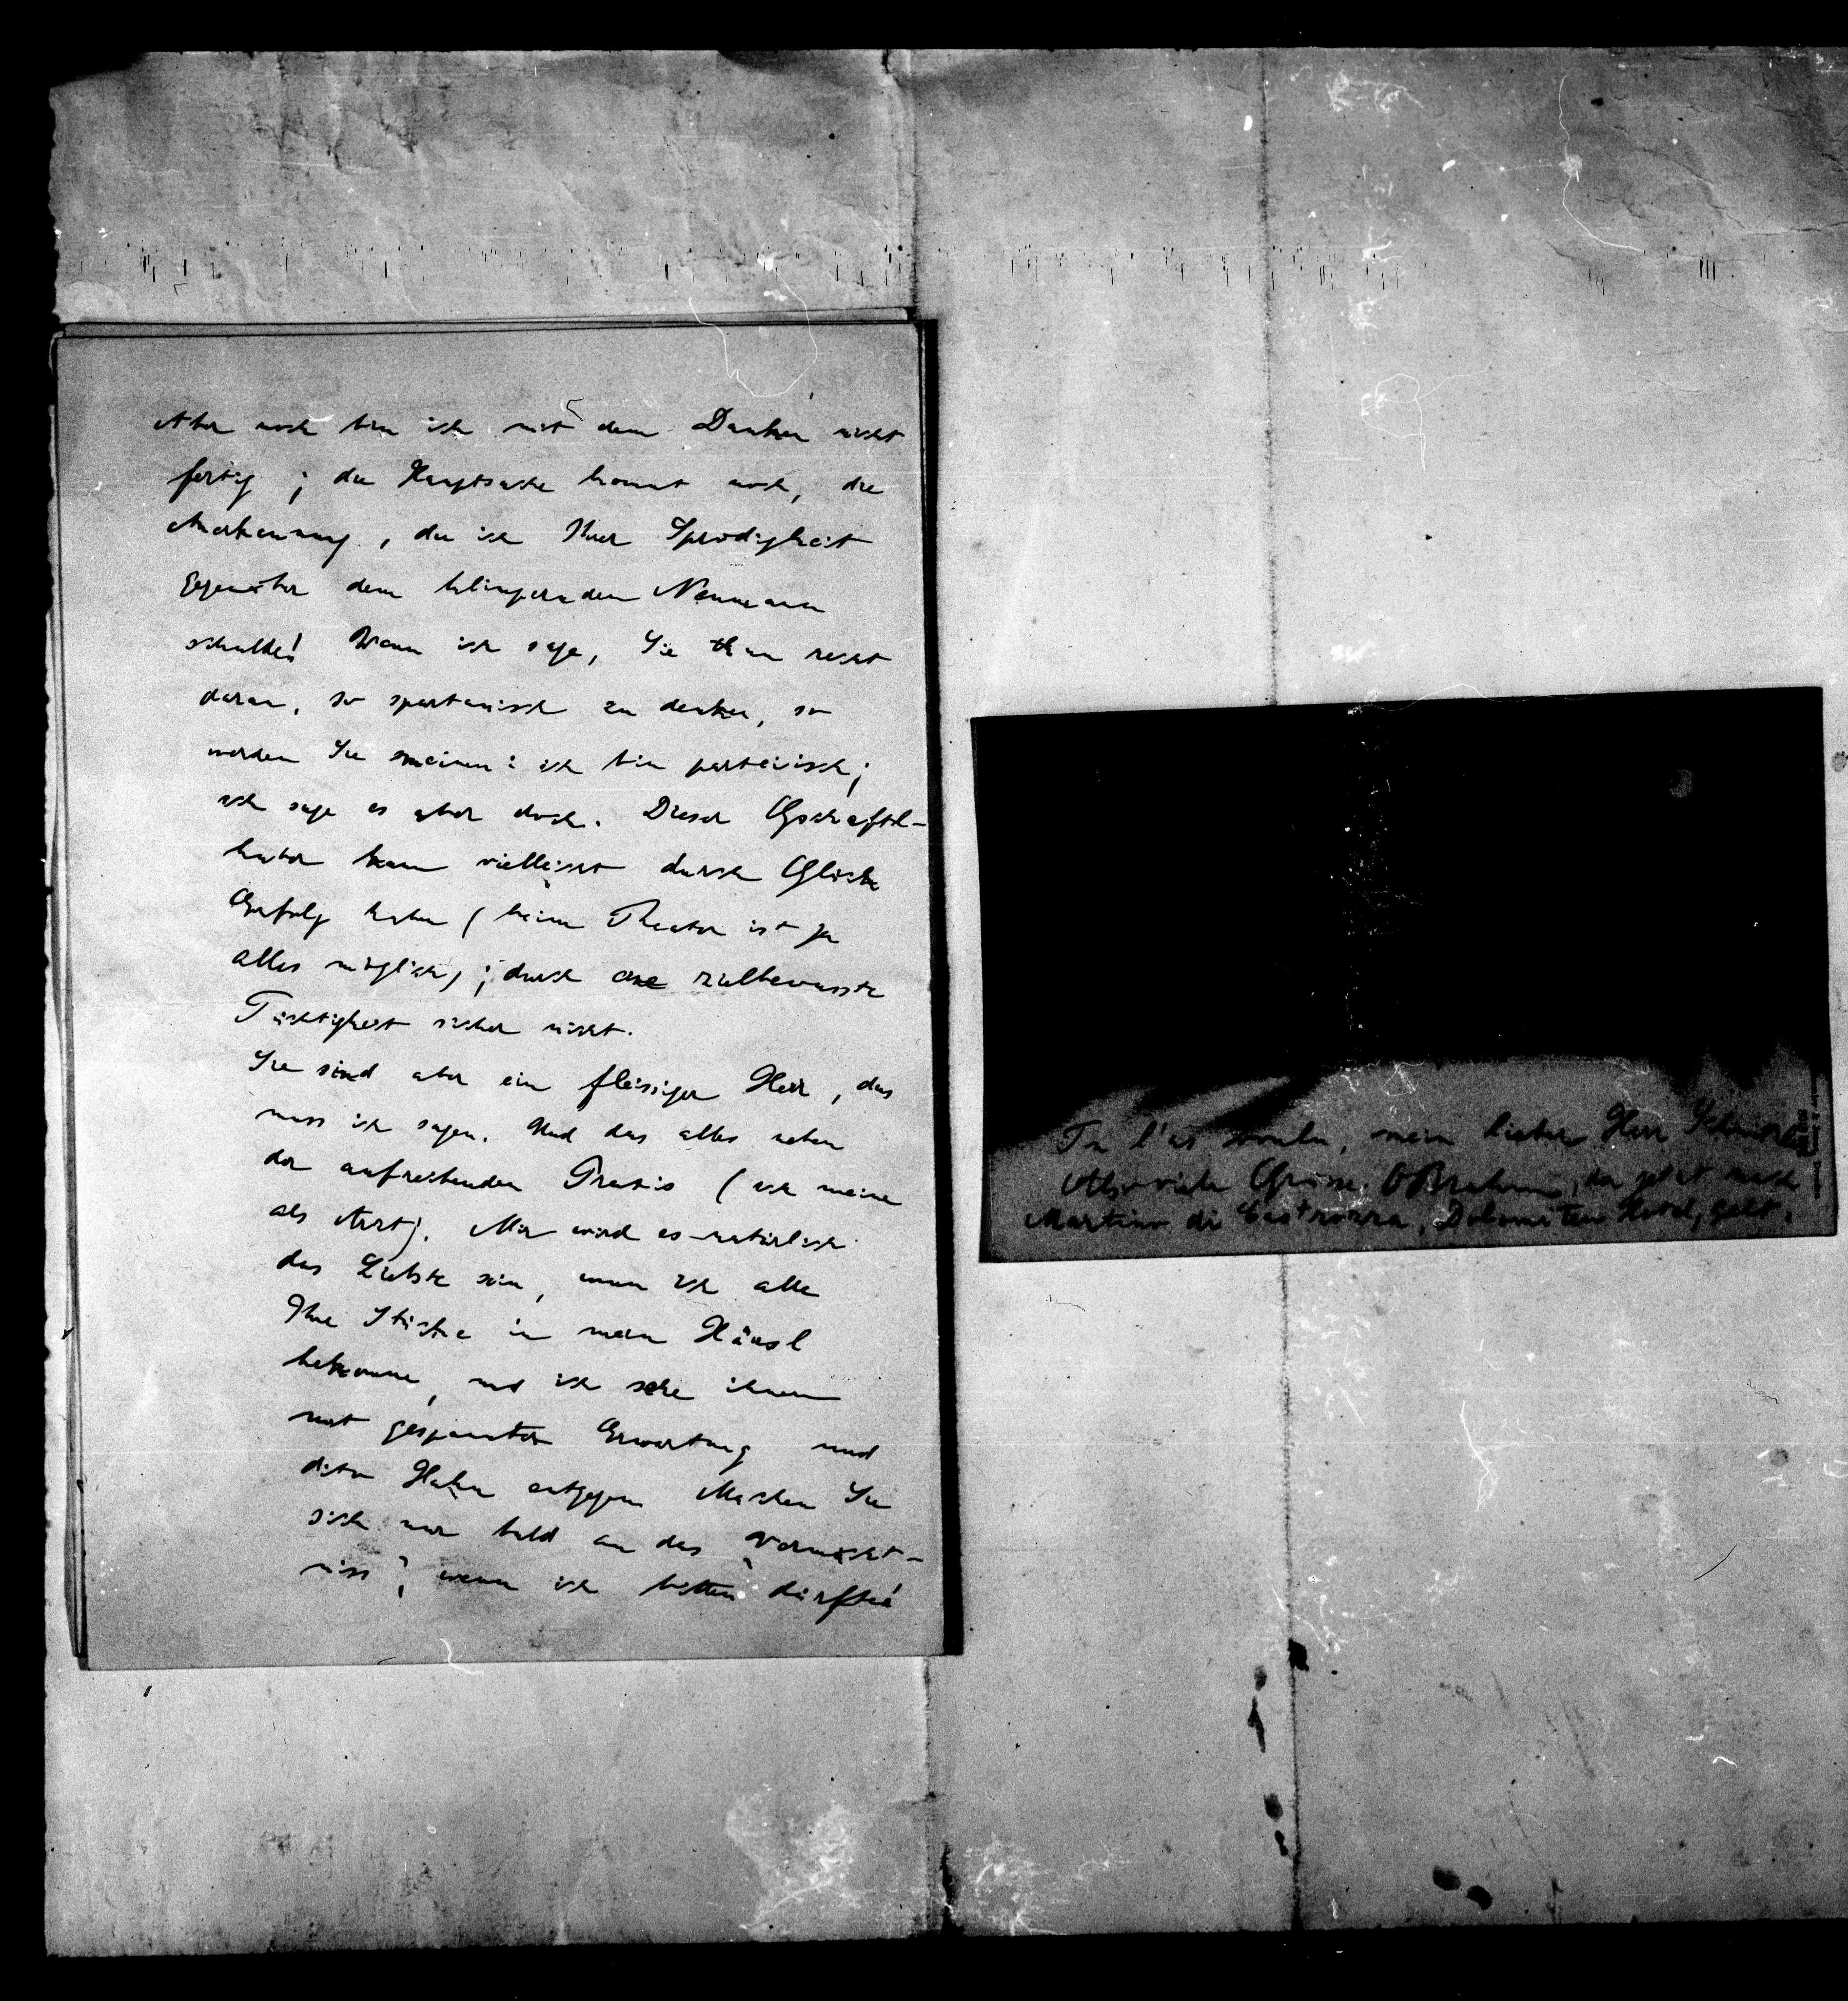 Aber noch bin ich mit dem Danken nicht
fertig; die Hauptsache kommt noch, die
Anerkennung, die ich Ihrer Sprödigkeit
gegenüber dem klingenden Neumann
schulde! Wenn ich sage, Sie thun recht
daran, so spartanisch zu denken, so
werden Sie meinen: ich bin parteiisch;
ich sage es aber doch. Dieser Gschaftl-
huber kann vielleicht durch Glück
Erfolg haben (beim Theater ist ja
alles möglich); durch eine zielbewusste
Tüchtigkeit sicher nicht.
Sie sind aber ein fleissiger Herr, das
muss ich sagen. Und das alles neben
der aufreibenden Praxis (ich meine
als Arzt). Mir wird es natürlich
das Liebste sein, wenn ich alle
Ihre Stücke in mein Häusl
bekomme, und ich sehe ihnen
mit gespannter Erwartung und
dito Hahn entgegen. Machen Sie
sich nur bald an das Vermächt-
niss; wenn ich bitten dürfte!
Tu l'as voulu, mein lieber Herr Schnitzler
Also viele Grüsse. OBrahm, der jetzt nach
Martino di Castrozza, Dolomiten Hotel, geht.